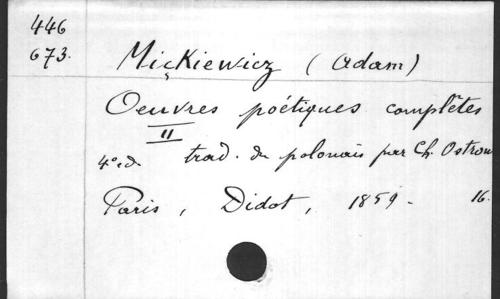 446
673.
Mickiewicz (Adam)
Oeuvres poétiques complètes
II
4e éd. trad. du polonais par Ch. Ostrow
Paris, Didot, 1859. 16.